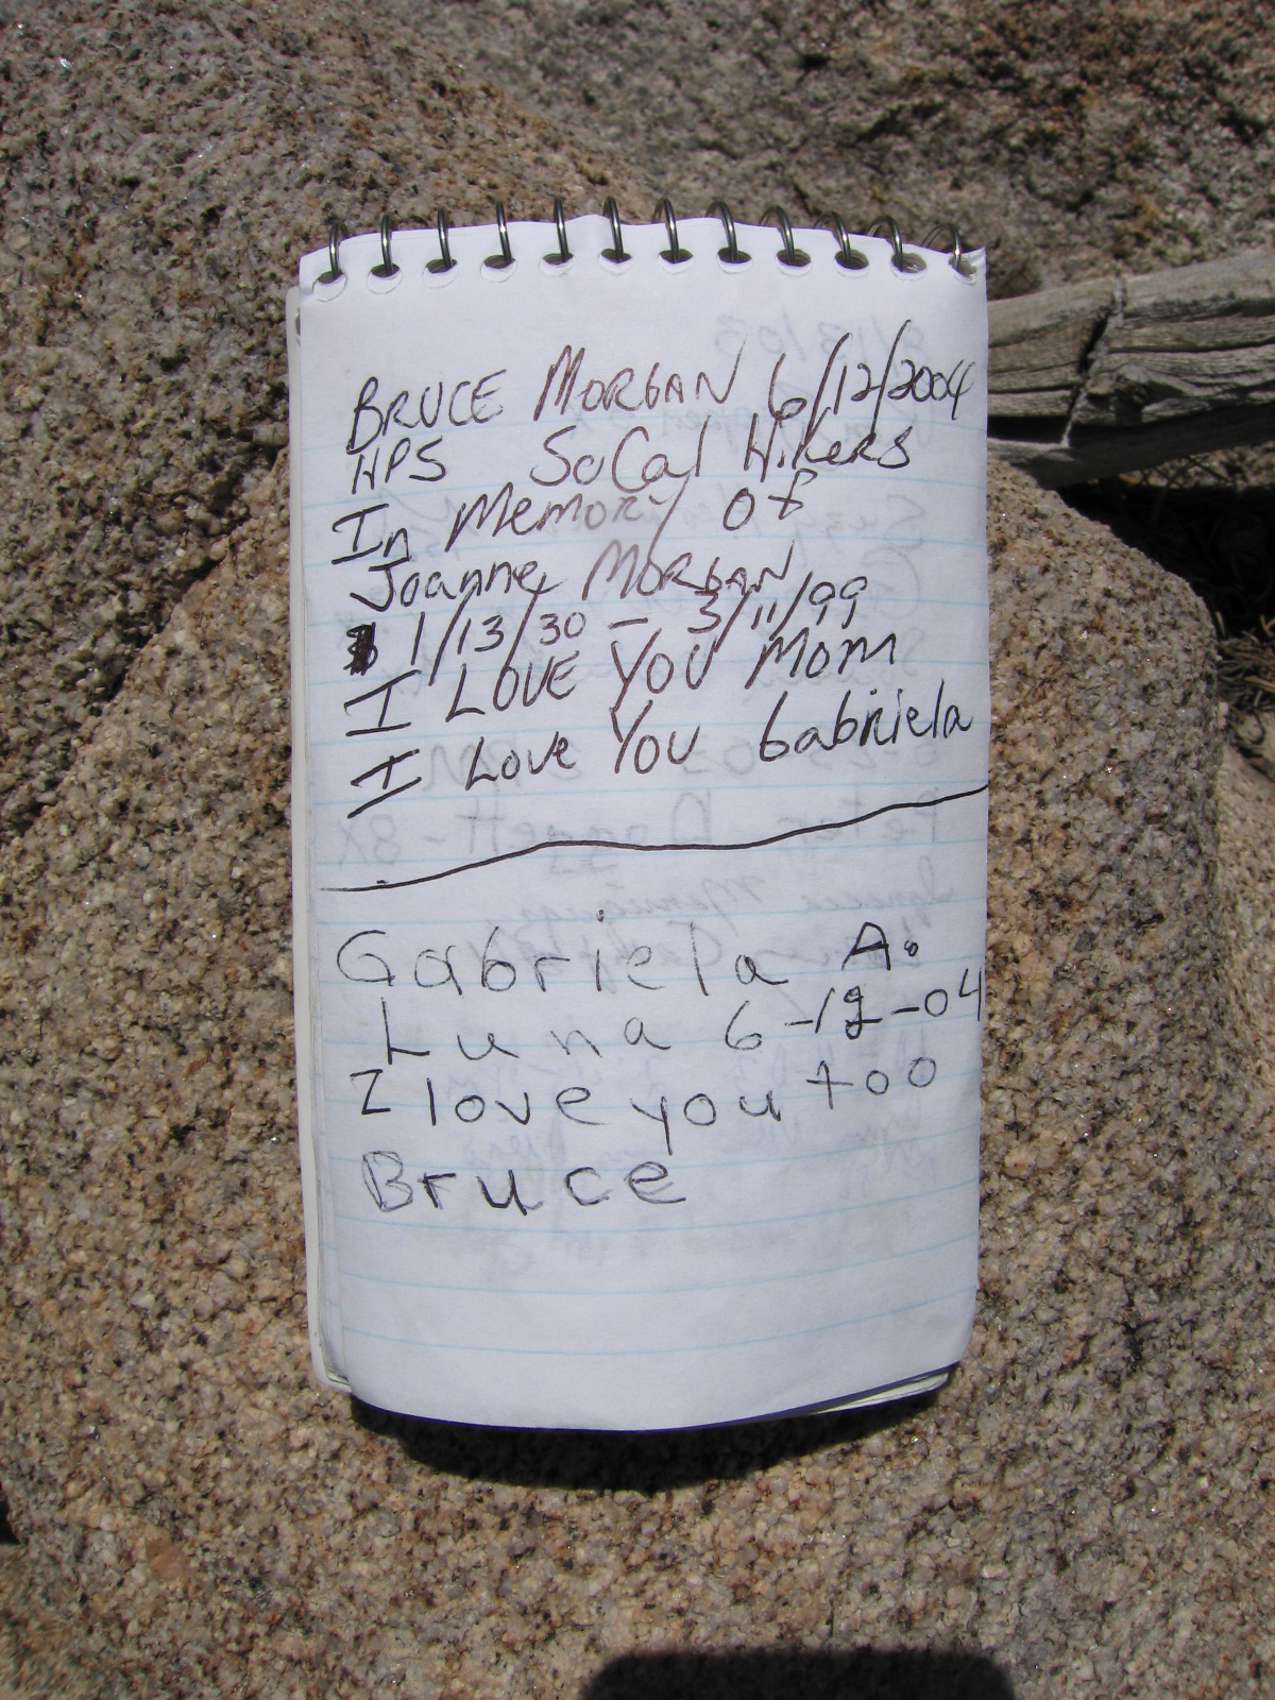 BRUCE MORGAN 6/12/2004
HPS SoCal Hikers
In Memory of
Joanne MORGAN
1/13/30 - 3/11/99
I LOVE YOU MOM
I Love You Gabriela
Gabriela A.
Luna 6-12-04
I love you too
Bruce